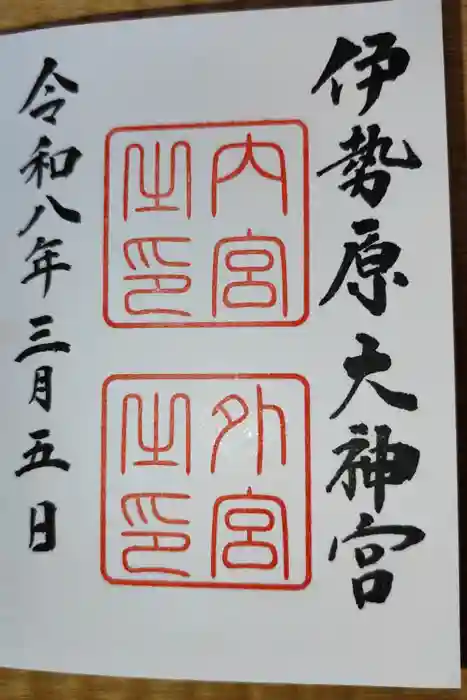 伊勢原大神宮
内宮
之印
外宮
之印
令和八年三月五日